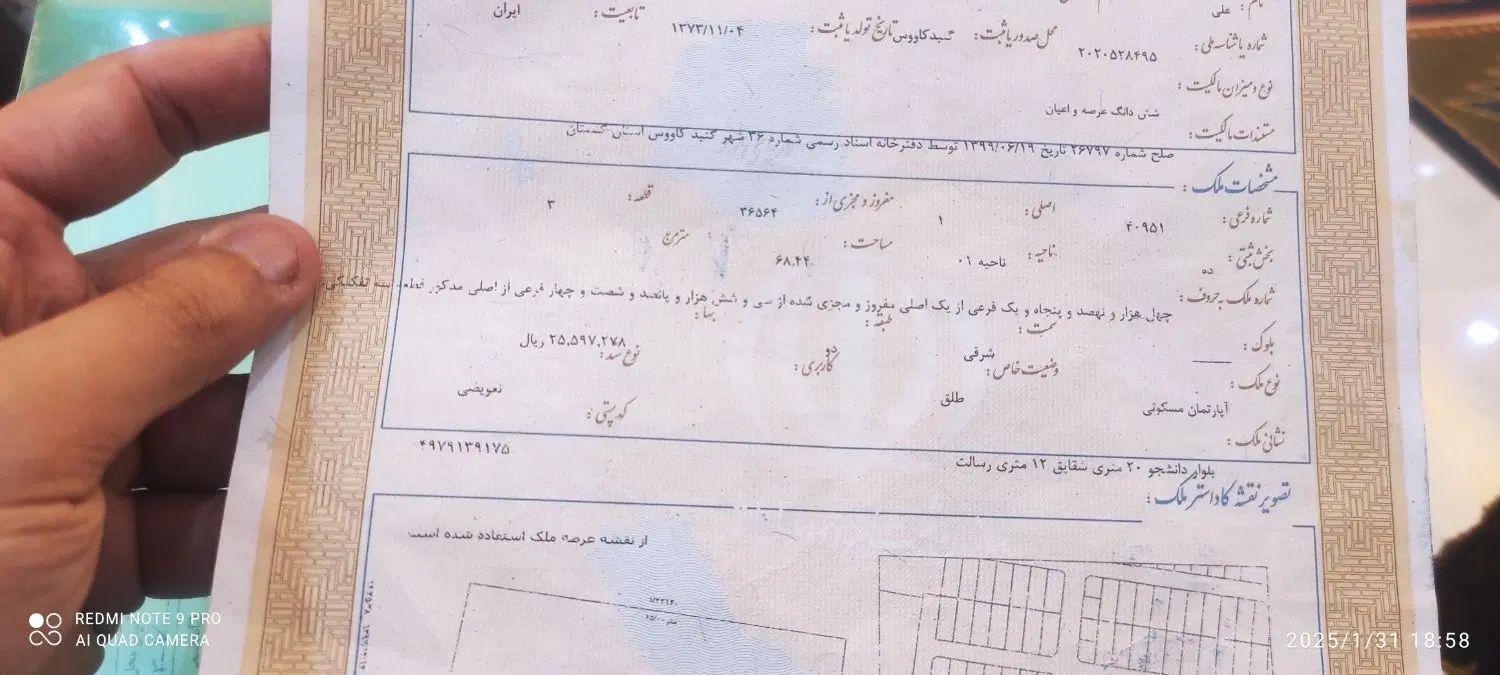 نام: علی
شماره یا شناسه ملی: ۲۰۲۰۵۲۸۴۹۵ محل صدور یا ثبت: گنبدکاووس تاریخ تولد یا ثبت: ۱۳۷۳/۱۱/۰۴ تابعیت: ایران
نوع و میزان مالکیت:
شش دانگ عرصه و اعیان
مستندات مالکیت:
صلح شماره ۲۶۷۹۷ تاریخ ۱۳۹۹/۰۶/۱۹ توسط دفترخانه اسناد رسمی شماره ۳۶ شهر گنبد کاووس استان گلستان
مشخصات ملک:
شماره فرعی: ۴۰۹۵۱ اصلی: ۱ مفروز و مجزی از: ۳۶۵۶۴ قطعه: ۳
بخش ثبتی: ده ناحیه: ناحیه ۰۱ مساحت: ۶۸.۲۴ مترمربع
شماره ملک به حروف:
چهل هزار و نهصد و پنجاه و یک فرعی از یک اصلی مفروز و مجزی شده از سی و شش هزار و پانصد و شصت و چهار فرعی از اصلی مذکور قطعه سه تفکیکی
بلوک: سمت: شرقی طبقه: دو بها: ۲۵,۵۹۷,۲۷۸ ریال
نوع ملک: آپارتمان مسکونی وضعیت خاص: طلق کاربری: نوع سند: تعویضی
نشانی ملک: کد پستی: ۴۹۷۹۱۳۹۱۷۵
بلوار دانشجو ۲۰ متری شقایق ۱۲ متری رسالت
تصویر نقشه کاداستر ملک:
از نقشه عرصه ملک استفاده شده است
REDMI NOTE 9 PRO
AI QUAD CAMERA
2025/1/31 18:58